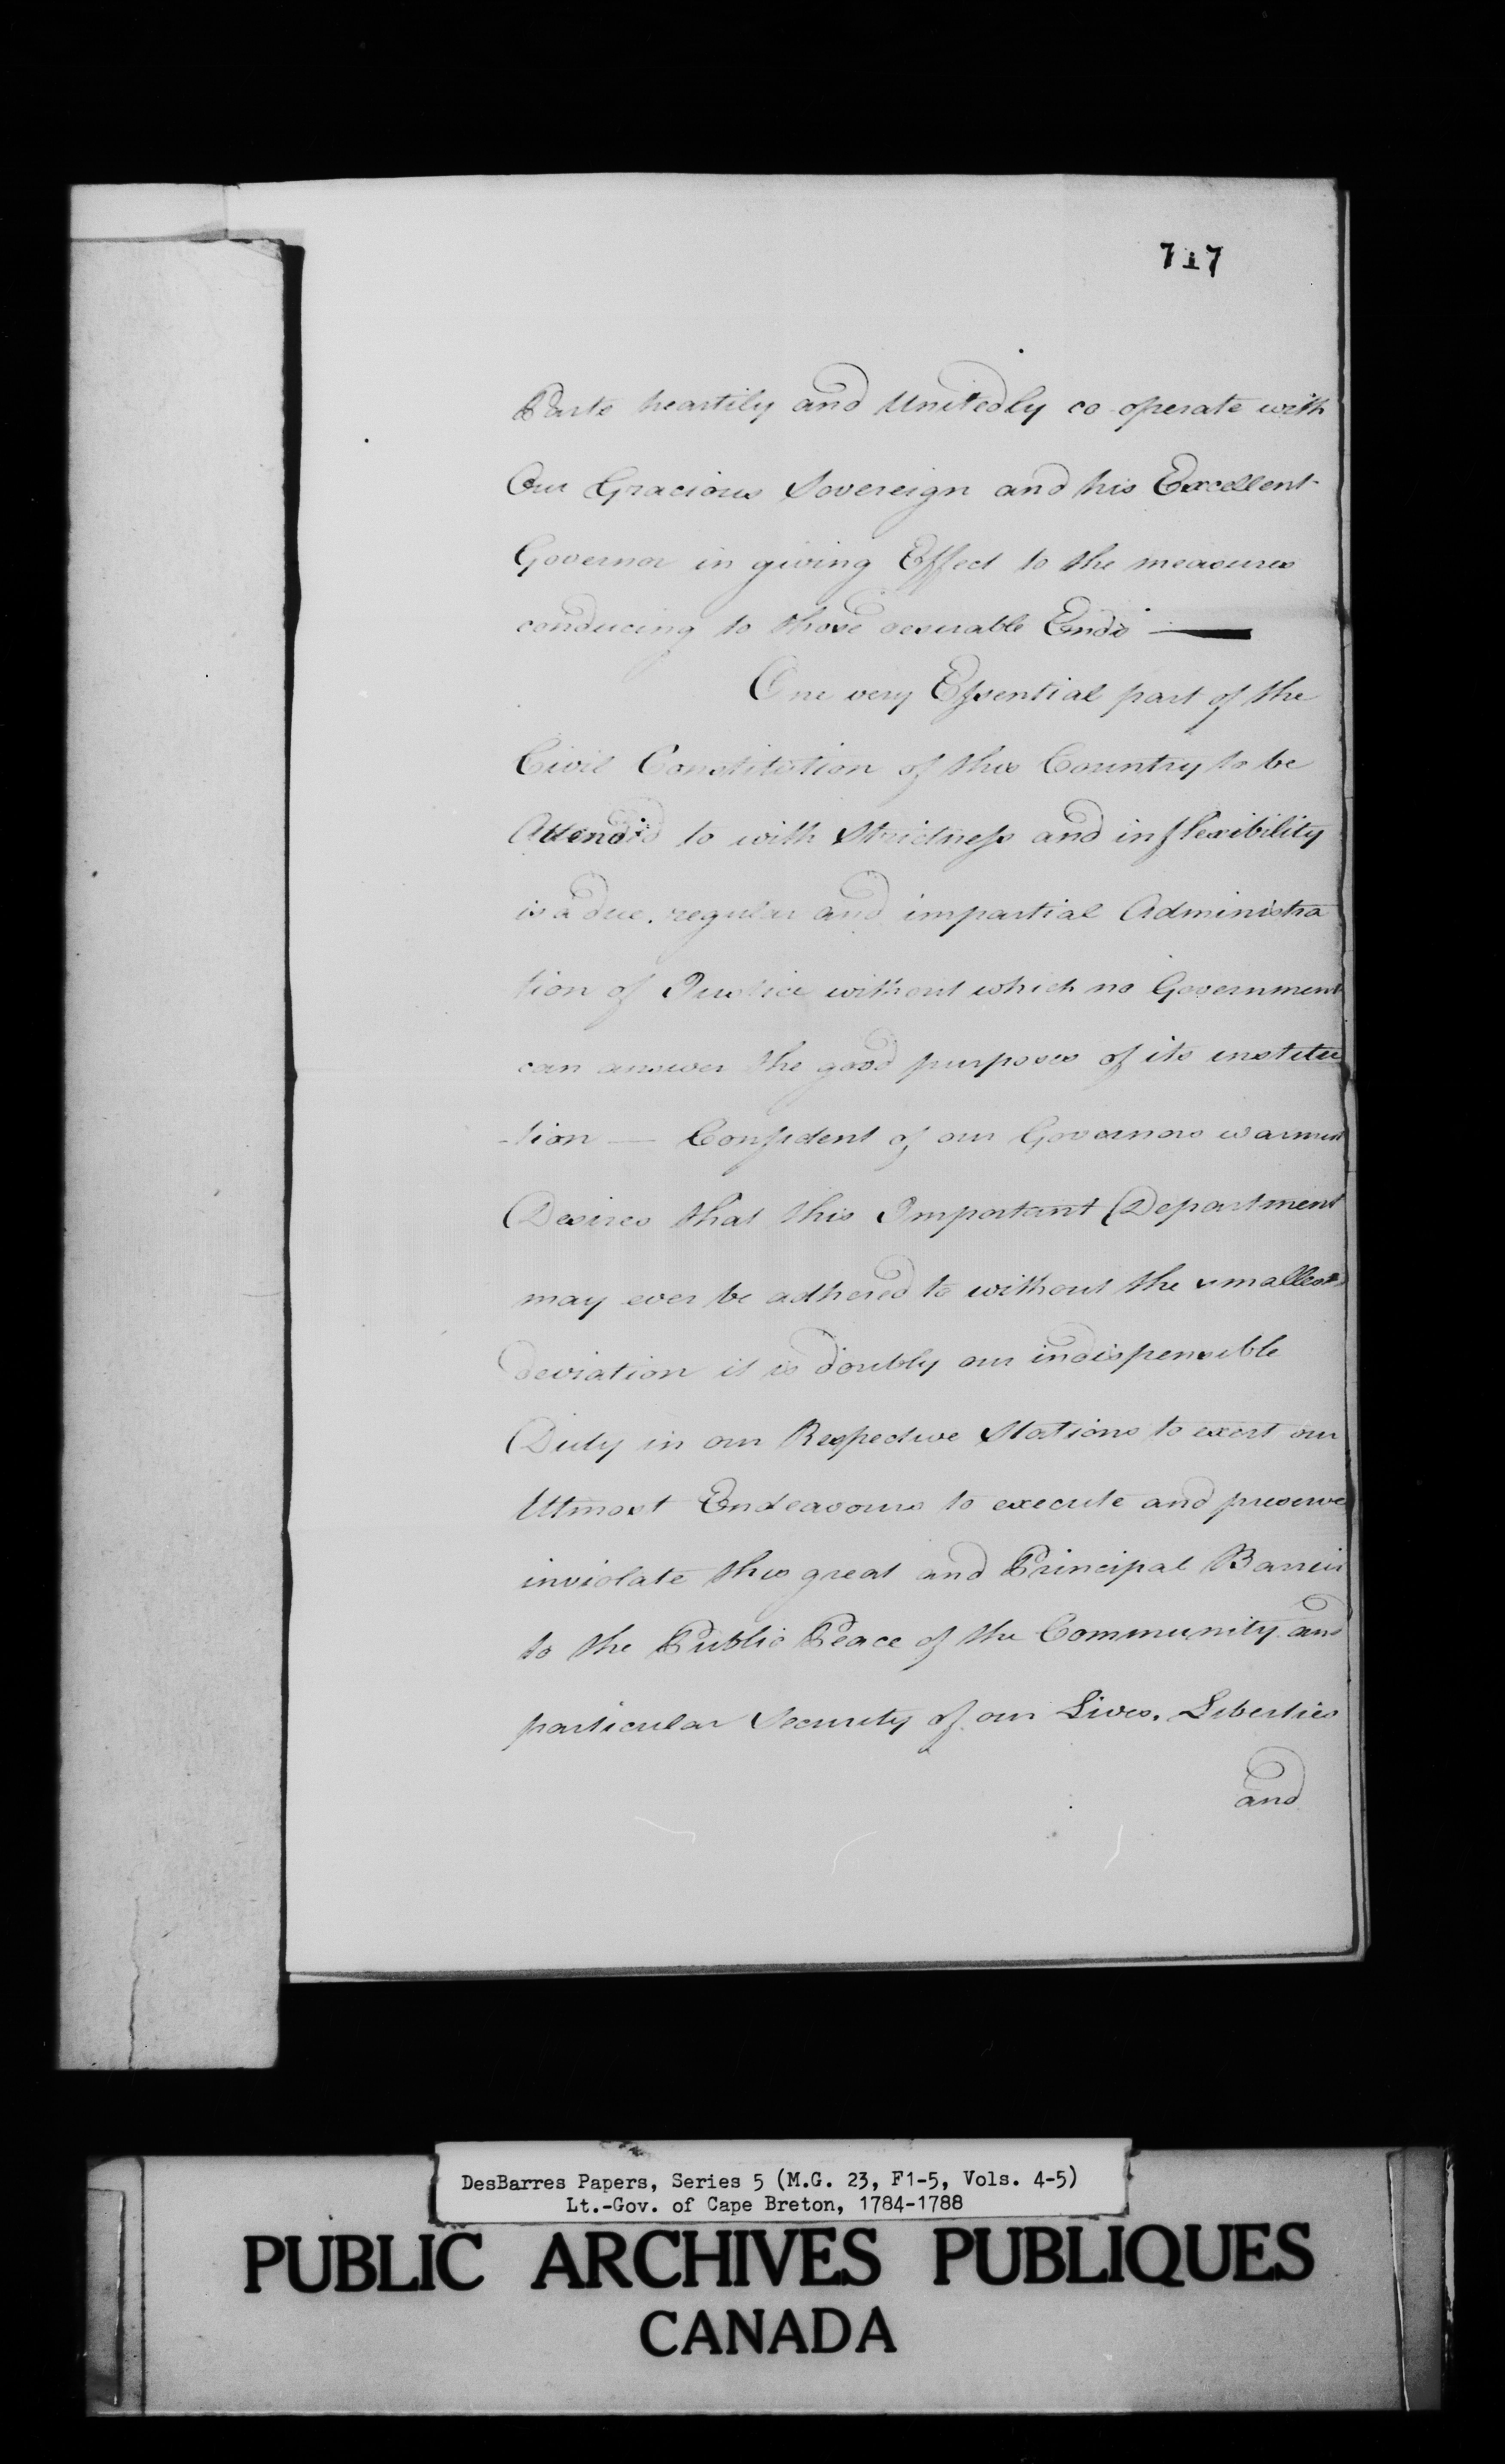 717
Parts heartily and Unitedly co operate with
Our Gracious Sovereign and his Excellent
Governor in giving Effect to the measures
conducing to those desirable Ends —
One very Essential part of the
Civil Constitution of this Country to be
Attended to with Strictness and inflexibility
is a due, regular and impartial Administra
tion of Justice without which no Government
can answer the good purposes of its institu
-tion — Confident of our Governors warmest
Desires that this Important Department
may ever be adhered to without the smallest
deviation it is doubly our indispensible
Duty in our Respective Stations to exert our
Utmost Endeavours to execute and preserve
inviolate this great and Principal Barrier
to the Public Peace of the Community and
particular Security of our Lives, Liberties
and
DesBarres Papers, Series 5 (M.G. 23, F1-5, Vols. 4-5)
Lt.-Gov. of Cape Breton, 1784-1788
PUBLIC ARCHIVES PUBLIQUES
CANADA